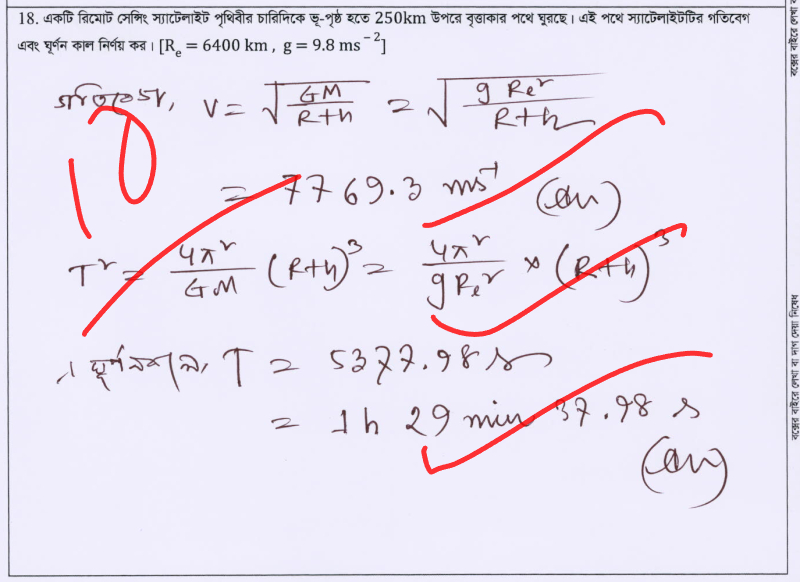 18. একটি রিমোট সেন্সিং স্যাটেলাইট পৃথিবীর চারিদিকে ভূ-পৃষ্ঠ হতে 250km উপরে বৃত্তাকার পথে ঘুরছে। এই পথে স্যাটেলাইটটির গতিবেগ
এবং ঘূর্ণন কাল নির্ণয় কর। [Rₑ = 6400 km , g = 9.8 ms⁻²]
গতিবেগ, V = √(GM/(R+h)) = √(g Rₑ²/(R+h))
10
= 7769.3 ms⁻¹ (Ans)
T² = 4π²/GM (R+h)³ = 4π²/(g Rₑ²) × (R+h)³
∴ ঘূর্ণনকাল, T = 5377.98 s
= 1h 29 min 37.98 s
(Ans)
বক্সের বাইরে লেখা বা দাগ দেয়া নিষেধ
বক্সের বাইরে লেখা ব